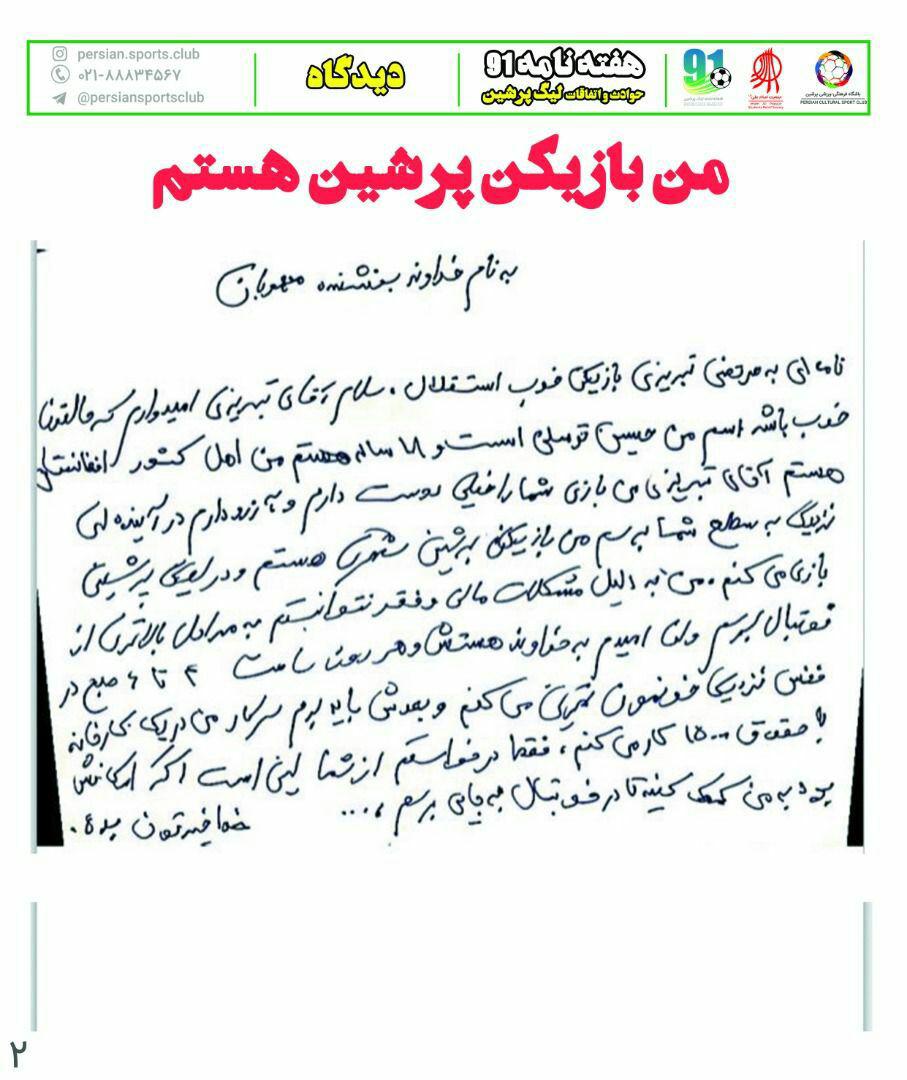 persian.sports.club
۰۲۱-۸۸۸۳۴۵۶۷
@persiansportsclub
دیدگاه
هفته نامه 91
حوادث و اتفاقات لیگ پرشین
91
باشگاه فرهنگی ورزشی پرشین
PERSIAN CULTURAL SPORT CLUB
من بازیکن پرشین هستم
به نام خداوند بخشنده مهربان
نامه ای به مرتضی تبریزی بازیکن خوب استقلال. سلام آقای تبریزی امیدوارم که حالتون
خوب باشه اسم من حسین توسلی است و ۱۸ ساله هستم من اهل کشور افغانستان
هستم آقای تبریزی من بازی شما را خیلی دوست دارم و آرزو دارم در آینده ای
نزدیک به سطح شما برسم من بازیکن پرشین هستم و در لیگ پرشین
بازی می کنم. من به دلیل مشکلات مالی و فقر نتوانستم به مراحل بالاتری از
فوتبال برسم ولی امیدم به خداوند هستش و هر روز ساعت ۴ تا ۶ صبح در
نزدیک خونمون تمرین می کنم و بعدش باید برم سر کار من در یک کارخانه
با حقوق ۱۵۰۰ کار می کنم، فقط درخواستم از شما این است اگر امکانش
بود به من کمک کنید تا در فوتبال به جایی برسم ،... خدا خیرتون بده.
۲